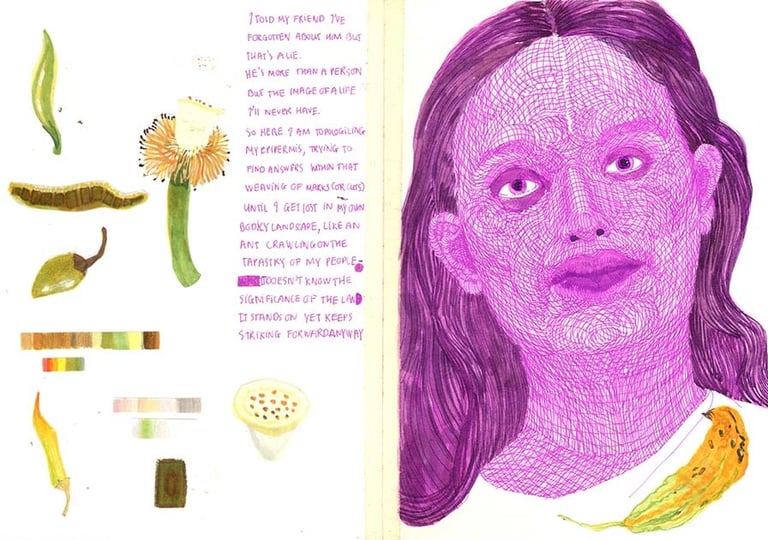 I TOLD MY FRIEND I'VE
FORGOTTEN ABOUT HIM BUT
THAT'S A LIE.
HE'S MORE THAN A PERSON
BUT THE IMAGE OF A LIFE
I'LL NEVER HAVE.
SO HERE I AM TOPOLOGILING
MY EPIFERMIS, TRYING TO
FIND ANSWERS WITHIN THAT
WEAVING OF MARKS (OR CUTS)
UNTIL I GET LOST IN MY OWN
BODILY LANDSCAPE, LIKE AN
ANT CRAWLING ON THE
TAPASTRY OF MY PEOPLE-
IT DOESN'T KNOW THE
SIGNIFICANCE OF THE LAND
IT STANDS ON YET KEEPS
STRIKING FORWARD ANYWAY